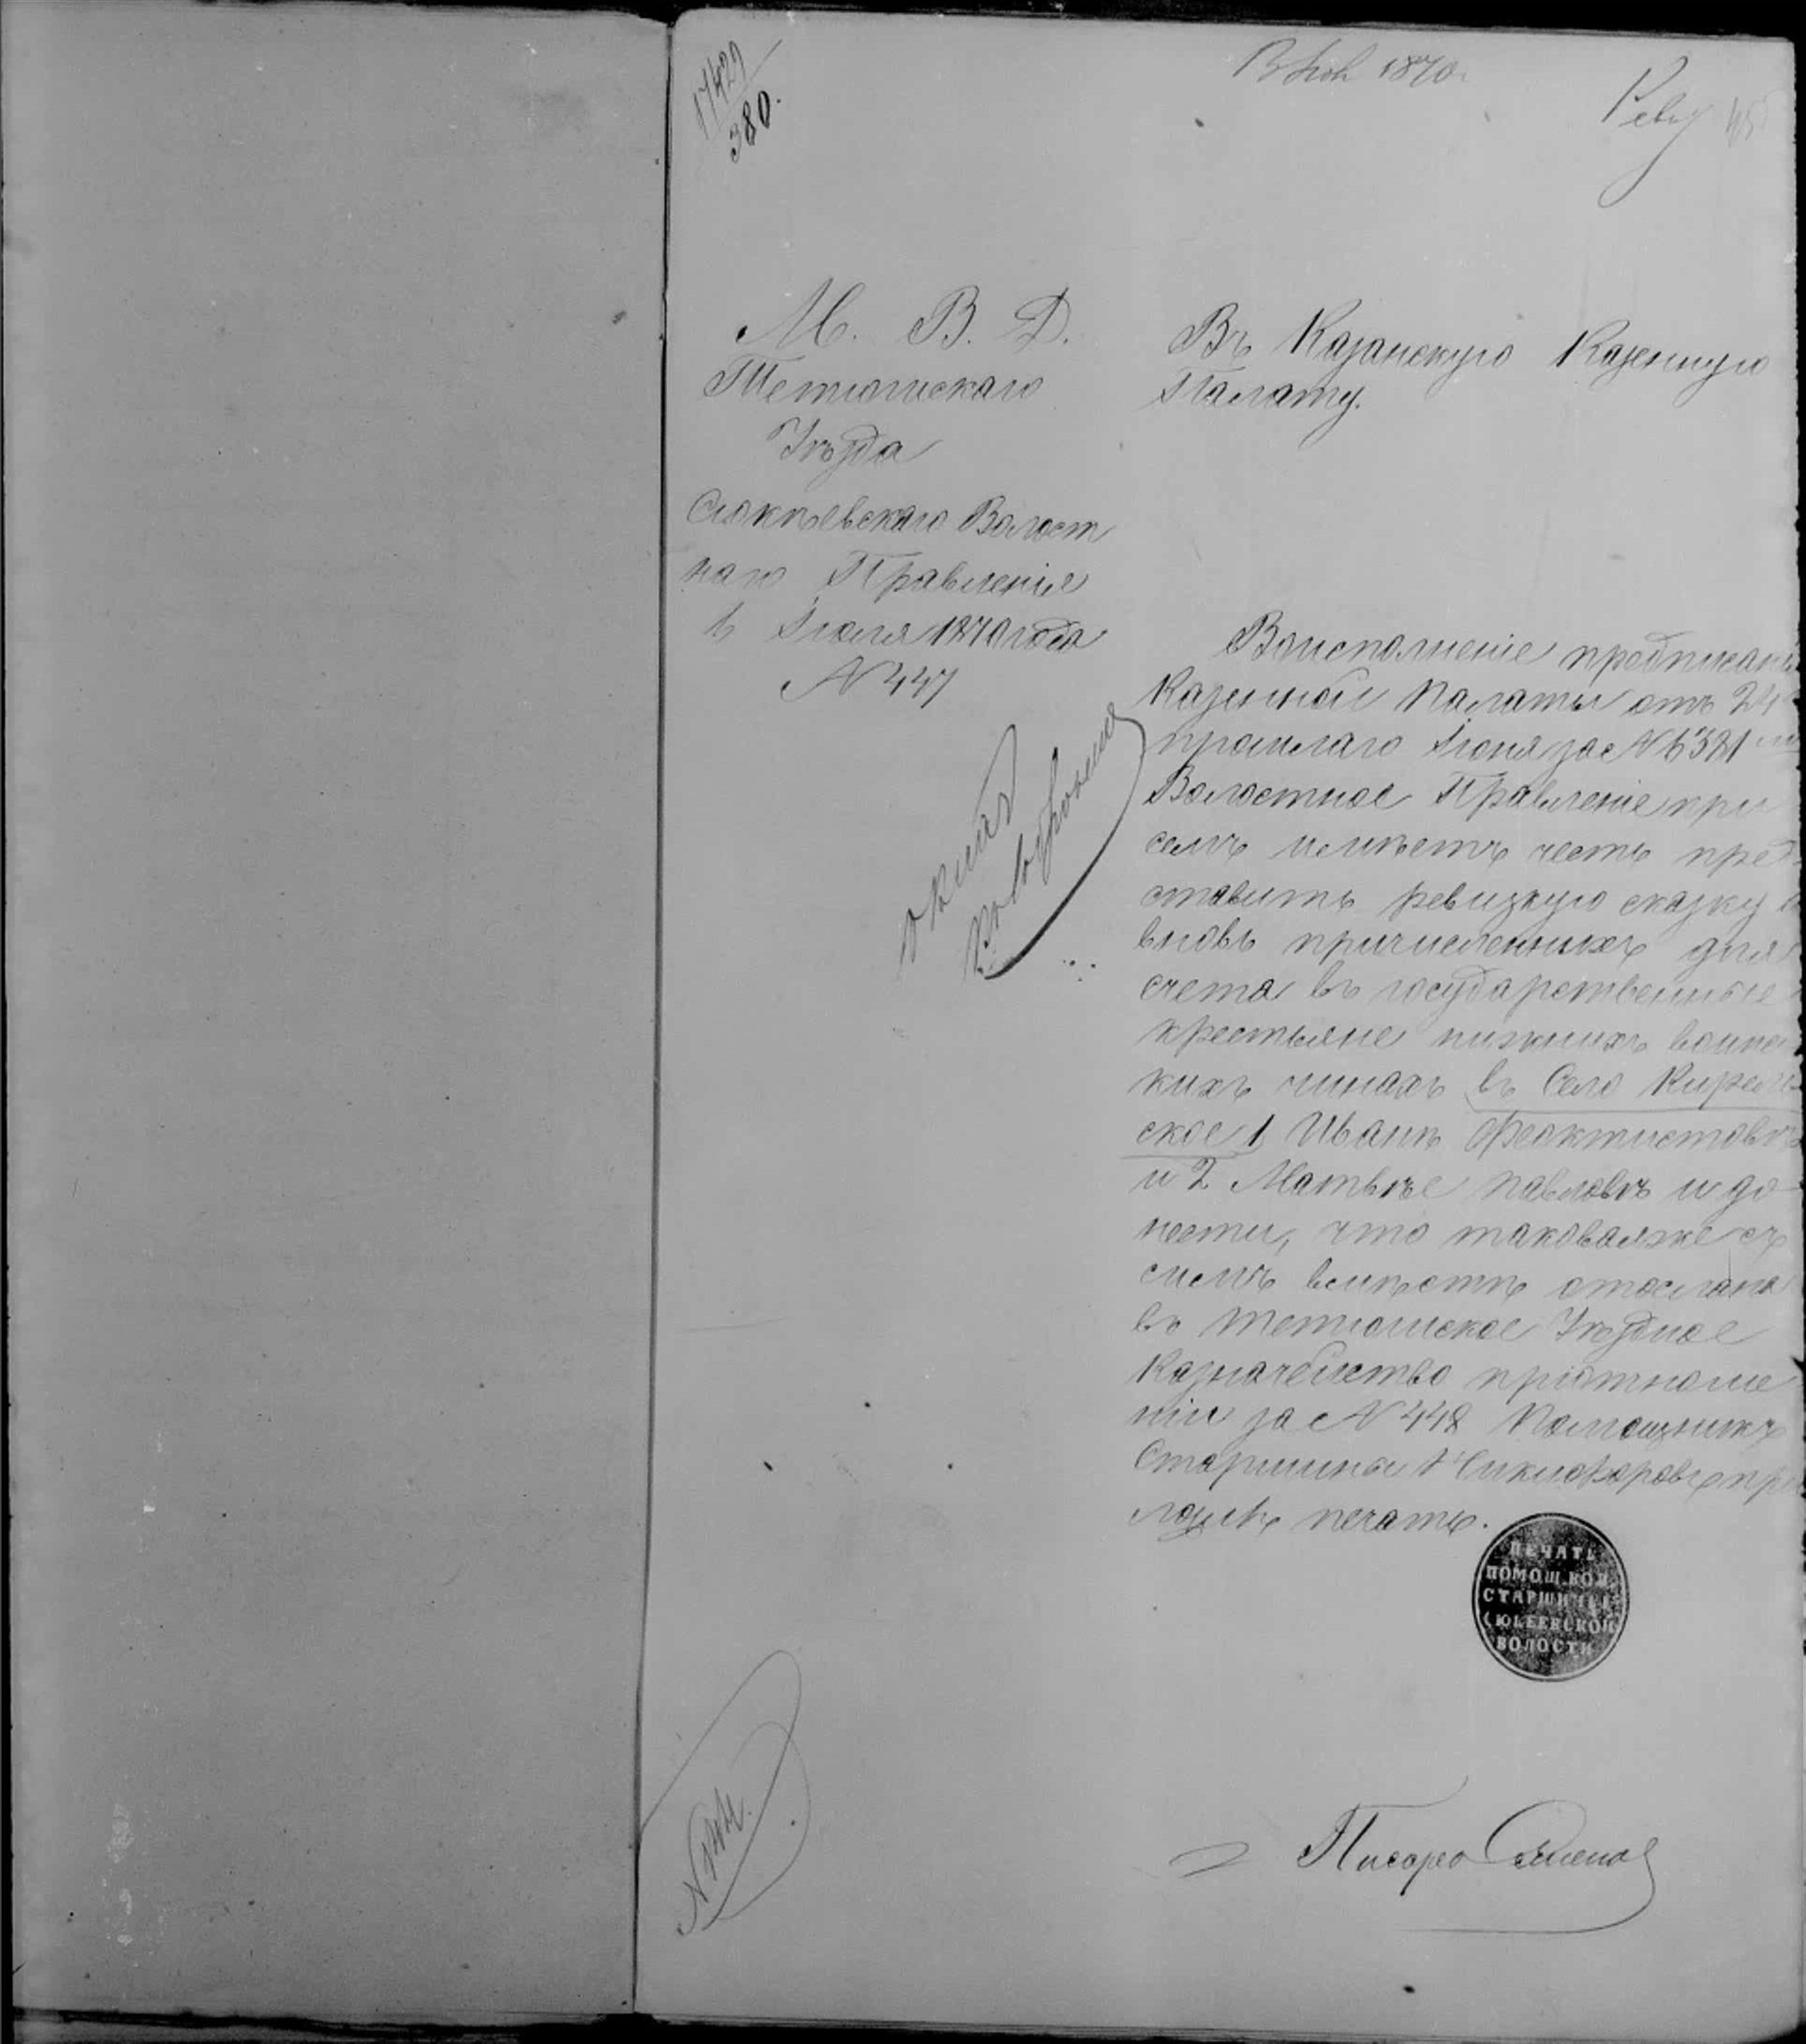 17429
380.
1870
М. В. Д.
Тетюшскаго
Уѣзда
Сюкѣевскаго Волост
наго Правленія
Іюля 1870 года
№ 447
Въ Казанскую Казенную
Палату.
Воисполненіе предписані
Казенной Палаты отъ 24
прошлаго Іюня за №
Волостное Правленіе при
семъ имѣетъ честь пред
ставить ревизкую сказку о
вновь причисленныхъ для
счета въ государственные
крестьяне нижнихъ воинс
кихъ чинахъ въ Село Кирель
ское 1 Иванѣ Феоктистовѣ
и 2 Матвѣе Павловѣ и до
нести, что таковаяже съ
симъ вмѣстѣ отослана
въ Тетюшское Уѣздное
Казначейство приотноше
ніи за № 448 Помощникъ
Старшины Никифоровъ при
ложилъ печать.
ПЕЧАТЬ
ПОМОЩ. ВОЛ.
СТАРШИНЫ
СЮКЕЕВСКОЙ
ВОЛОСТИ
Писарь Семенов